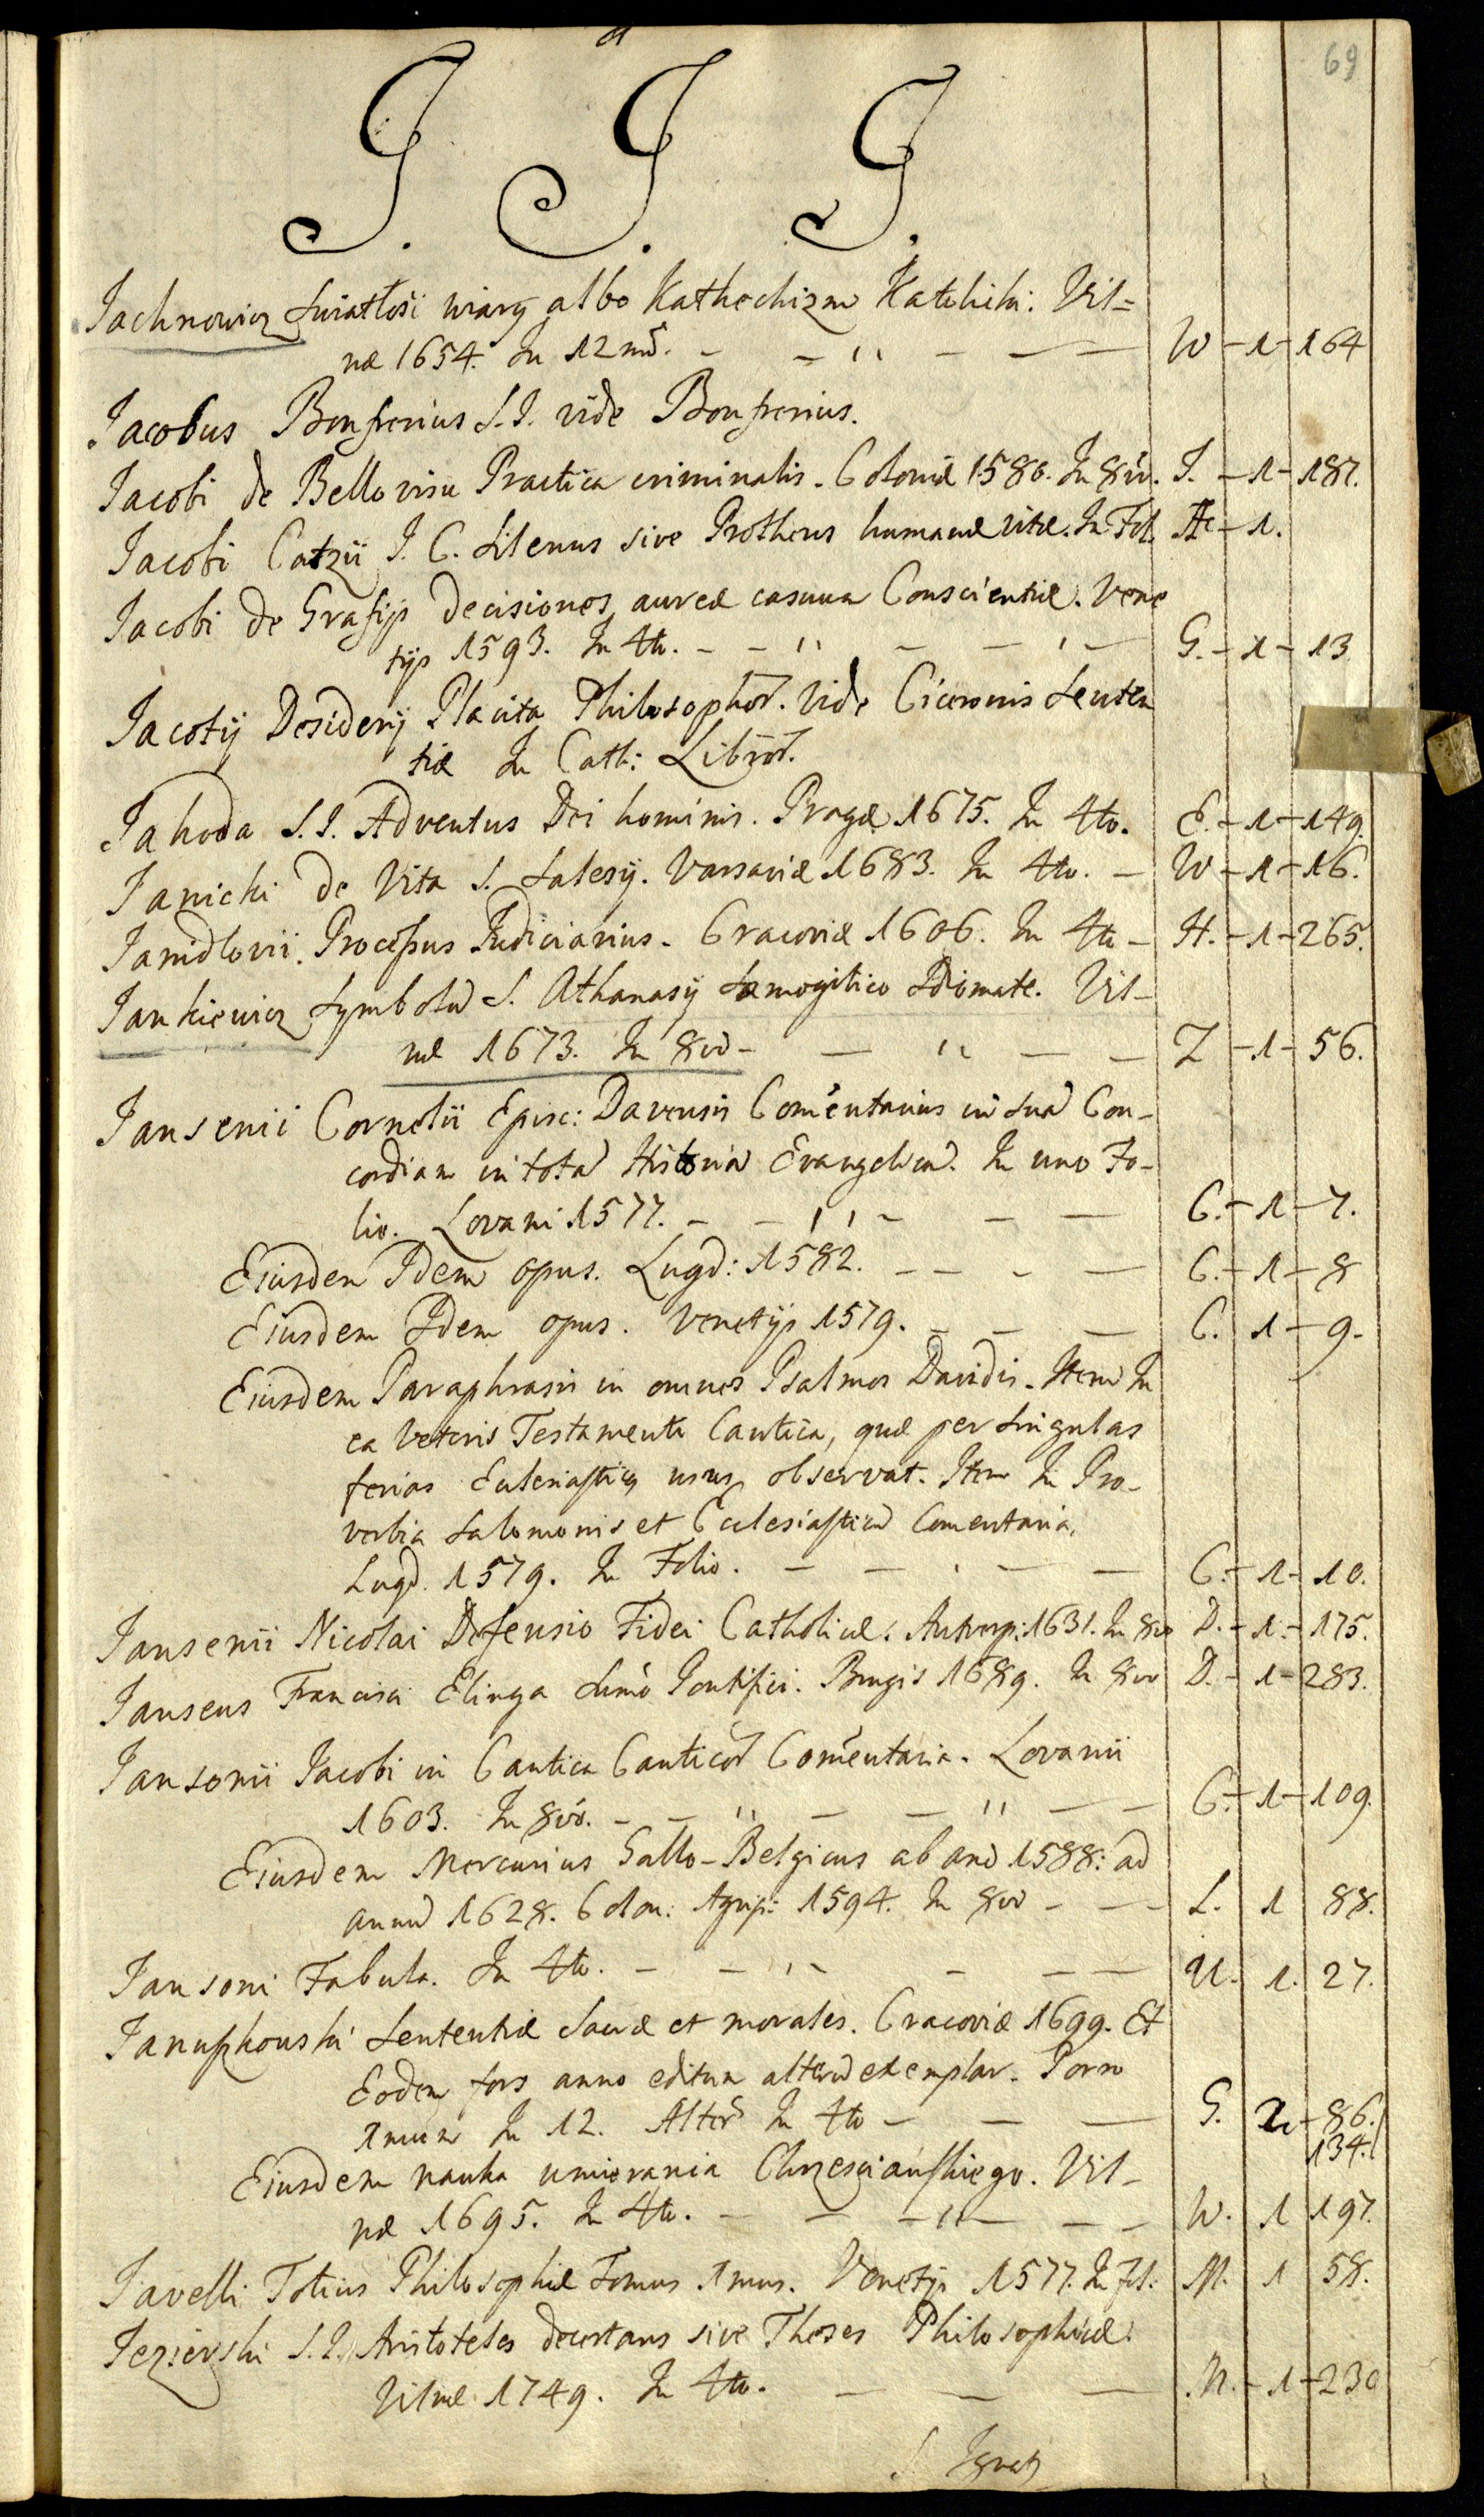 69
J. J. J.
Jachnowicz Swiatłosi wiary albo Kathechizm Katolicki. Vil=
næ 1654. In 12mõ. W - 1 - 164
Jacobus Bonfrerius S.J. vide Bonfrerius.
Jacobi de Bello visu Practica criminalis. Coloniæ 1580. In 8vo. J. - 1 - 187.
Jacobi Catzii J. C. Silenus sive Protheus humanæ vitæ. In Fol. - 1.
Jacobi de Grafijs Decisiones aureæ casuum Conscientiæ. Vene
tijs 1593. In 4to. G. - 1 - 13
Jacotij Desiderij Placita Philosophor. Vide Ciceronis Senten
tiæ In Cath: Libror.
Jahoda S.J. Adventus Dei hominis. Pragæ 1675. In 4to. E. - 1 - 149.
Janicki de Vita S. Salesij. Varsaviæ 1683. In 4to. - W - 1 - 16.
Janidlovii. Processus Judiciarius. Cracoviæ 1606. In 4to - H. - 1 - 265.
Jankiewicz Symbolũ S. Athanasij Samogitico Idiomate. Vil-
næ 1673. In 8vo - Z - 1 - 56.
Jansenii Cornelii Episc: Davensis Com̃entarius in suã Con-
cordiam in totã Historiã Evangelicã. In uno Fo-
lio. Lovani 1577. C. - 1 - 7.
Eiusdem Idem opus. Lugd: 1582. C. - 1 - 8
Eiusdem Idem opus. Venetijs 1579. C. 1 - 9.
Eiusdem Paraphrasis in omnes Psalmos Davidis. Item In
ea Veteris Testamenti Cantica, quæ per singulas
ferias Ecclesiasticus usus observat. Item In Pro-
verbia Salomonis et Ecclesiasticũ Comentaria.
Lugd. 1579. In Folio. C. - 1 - 10.
Jansenii Nicolai Defensio Fidei Catholicæ. Antverp: 1631. In 8vo D. - 1. - 175.
Jansens Francisci Elinga Sum̃o Pontifici. Brugis 1689. In 8vo D. - 1 - 283.
Jansonii Jacobi in Cantica Canticor Com̃entaria. Lovanii
1603. In 8vo. C. - 1 - 109.
Eiusdem Mercurius Gallo-Belgicus ab anõ 1588: ad
annũ 1628. Colon: Agrip: 1594. In 8vo - L. 1 88.
Jansoni Fabula. In 4to. U. 1. 27.
Januszkowski Sententiæ Sacræ et morales. Cracoviæ 1699. Et
Eodem fors anno editum alterũ exemplar. Porro
1mum In 12. Alterũ In 4to - G. 2 - 86.
134.
Eiusdem nauka umierania Chrzesciańskiego. Vil-
næ 1695. In 4to. W. 1 197.
Javelli Totius Philosophiæ Tomus 1mus. Venetijs 1577. In fol: M. 1 58.
Jezierski S.J. Aristoteles decertans sive Theses Philosophicæ.
Vilnæ 1749. In 4to. M. - 1 - 230
S. Ignatij